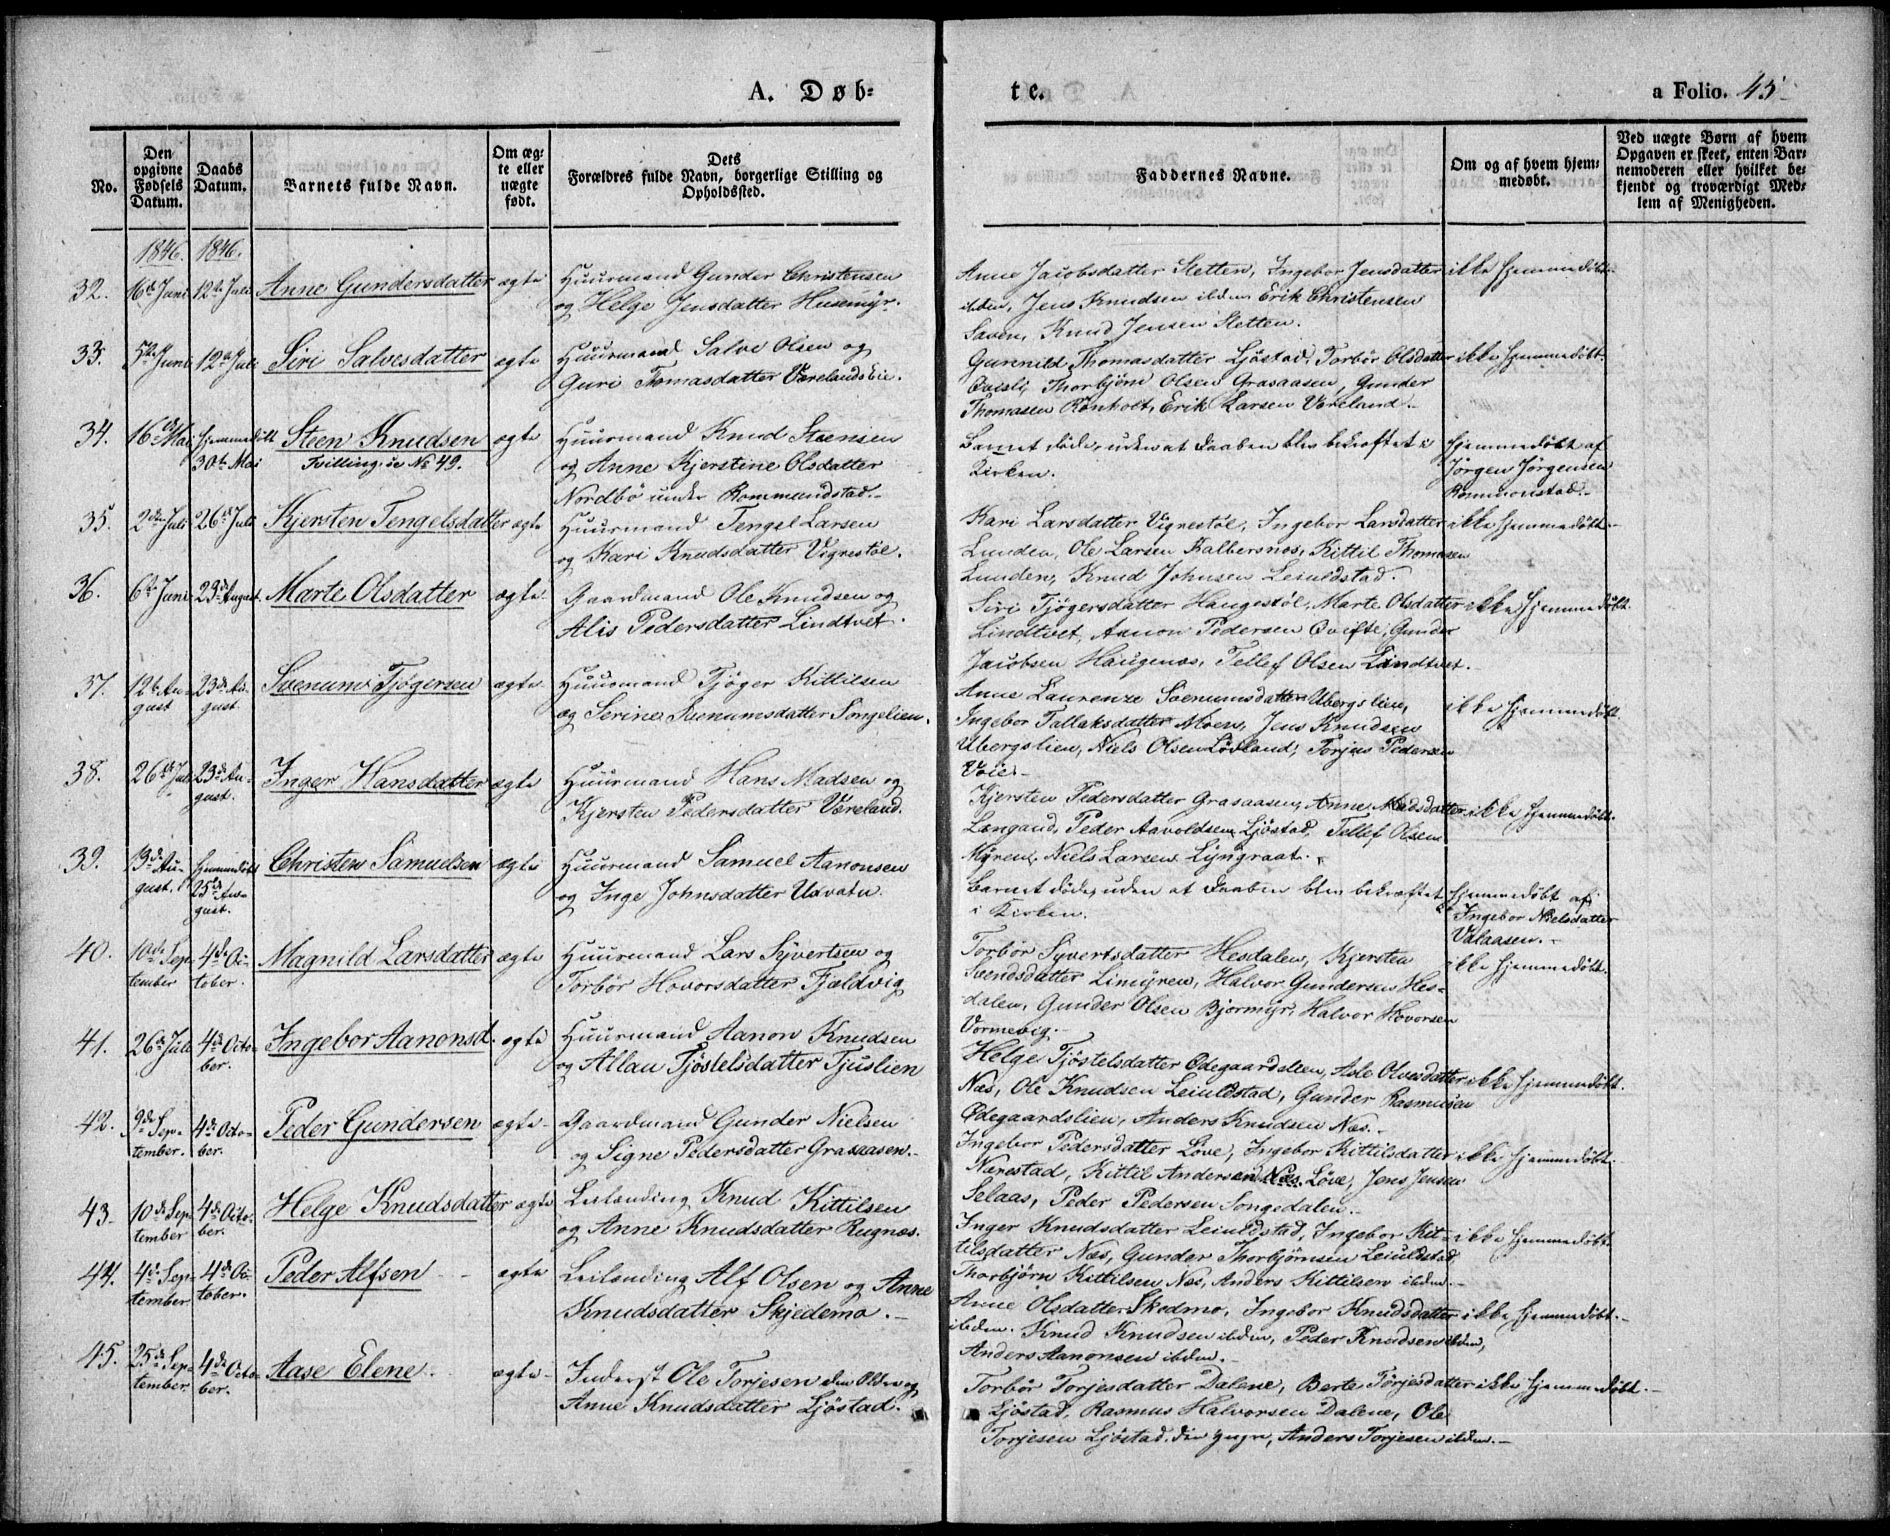 A. Døb=
te.
a Folio. 45
No.
Den opgivne Fødsels Datum.
Daabs Datum.
Barnets fulde Navn.
Om ægte eller uægte født.
Dets Forældres fulde Navn, borgerlige Stilling og Opholdsted.
Faddernes Navne.
Om og af hvem hjemmedøbt.
Ved uægte Børn af hvem Opgaven er skeet, enten Barnemoderen eller hvilket bekjendt og troværdigt Medlem af Menigheden.
1846. 1846.
32. 16de Juni 12te Juli Anne Gundersdatter ægte Huusmand Gunder Christensen
og Helge Jensdatter Husemyr.
Anne Jacobsdatter Sletten, Ingebor Jensdatter ikke hjemmedøbt.
ibden, Jens Knudsen ibden Erik Christensen
Saven, Knud Jensen Sletten.
33. 5te Juni 12te Juli Siri Salvesdatter ægte Huusmand Salve Olsen og
Guri Thomasdatter Værelandslie.
Gunnild Thomasdatter Ljøstad, Torbør Olsdatter ikke hjemmedøbt.
Qvisli, Thorbjørn Olsen Grasaasen, Gunder
Thomasen Rønholt, Erik Larsen Væreland.
34. 16de Mai hjemmedøbt 30te Mai Steen Knudsen ægte Huusmand Knud Steensen
Tvilling, se No 49.
og Anne Kjerstine Olsdatter
Nordbø under Rommundstad.
Barnet døde, uden at Daaben blev bekræftet i
Kirken.
hjemmedøbt af
Jørgen Jørgensen
Rommonstad.
35. 2den Juli 26de Juli Kjersten Tengelsdatter ægte Huusmand Tengel Larsen
og Kari Knudsdatter Vigrestøl.
Kari Larsdatter Vigrestøl, Ingebor Larsdatter ikke hjemmedøbt.
Lunden, Ole Larsen Kalbersnæs, Kittil Thomasen
Lunden, Knud Johnsen Leiuldstad.
36. 6te Juni 23de August. Marte Olsdatter ægte Gaardmand Ole Knudsen og
Alis Pedersdatter Lindtvet.
Siri Tjøgersdatter Haugestøl, Marte Olsdatter ikke hjemmedøbt.
Lindtvet, Aanon Pedersen Qvifte, Gunder
Jacobsen Haugenæs, Tellef Olsen Lindtvet.
37. 12te August 23de August. Svenum Tjøgersen ægte Huusmand Tjøger Kittilsen
og Serine Svenumsdatter Songelien.
Anne Laurenze Svenumsdatter Ubergslien,
ikke hjemmedøbt.
Ingebor Tallaksdatter Moen, Jens Knudsen
Ubergslien, Niels Olsen Løvland, Torjus Pedersen
Voie.
38. 26de Juli 23de August. Inger Hansdatter ægte Huusmand Hans Madsen og
Kjersten Pedersdatter Væreland.
Kjersten Pedersdatter Grasaasen, Anne Madsdatter ikke hjemmedøbt.
Langand, Peder Aavoldsen Ljøstad, Tellef Olsen
Myren, Niels Larsen Lyngraat.
39. 13de August. Hjemmedøbt 25de August. Christen Samuelsen ægte Huusmand Samuel Aanonsen
og Inge Johnsdatter Uavatn.
Barnet døde, uden at Daaben blev bekræftet
i Kirken.
hjemmedøbt af
Ingebor Nielsdatter
Valaasen.
40. 10de September 4de October. Magnild Larsdatter ægte Huusmand Lars Syvertsen og
Torbør Hovorsdatter Fjeldvig
Torbør Syvertsdatter Hesdalen, Kjersten
ikke hjemmedøbt.
Svendsdatter Limyren, Halvor Gundersen Hesdalen,
Gunder Olsen Bjørmyr, Halvor Hovorsen
Vormevig.
41. 26de Juli 4de October. Ingebor Aanonsd. ægte Huusmand Aanon Knudsen
og Allau Tjøstelsdatter Tjuslien
Helge Tjøstelsdatter Ødegaardslien, Asle Olvesdatter ikke hjemmedøbt.
Næs, Ole Knudsen Leiuldstad, Gunder Rasmusen
Ødegaardslien, Anders Knudsen Næs.
42. 9de September. 4de October. Peder Gundersen ægte Gaardmand Gunder Nielsen
og Signe Pedersdatter Grasaasen.
Ingebor Pedersdatter Løve, Ingebor Kittilsdatter ikke hjemmedøbt.
Nærestad, Kittil Andersen Næs, Løve, Jens Jensen
Selaas, Peder Pedersen Songedalen.
43. 10de September 4de October. Helge Knudsdatter ægte Leilænding Knud Kittilsen
og Anne Knudsdatter Rugnæs.
Inger Knudsdatter Leiuldstad, Ingebor Kit- ikke hjemmedøbt.
tilsdatter Næs, Gunder Thorbjørnsen Leiuldstad
Thorbjørn Kittilsen Næs, Anders Kittilsen ibden.
44. 4de September 4de October. Peder Alfsen ægte Leilænding Alf Olsen og Anne
Knudsdatter Skjedemo.
Anne Olsdatter Skedmo, Ingebor Knudsdatter ikke hjemmedøbt.
ibden. Knud Knudsen ibden, Peder Knudsen ibden,
Anders Aanonsen ibden.
45. 25de September. 4de October. Aase Elene ægte Inderst Ole Torjesen den Ældre og
Anne Knudsdatter Ljøstad.
Torbør Torjesdatter Dalene, Berte Torjesdatter ikke hjemmedøbt.
Ljøstad, Rasmus Halvorsen Dalene, Ole
Torjesen Ljøstad den yngre, Anders Torjesen ibden.